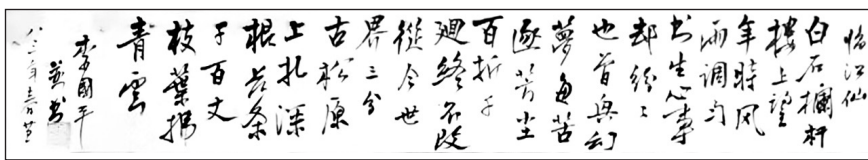 临江仙
白石欄杆
樓上望
年時風
雨調匀
书生心事
却纷々
也曾與幻
夢苦
逐芳尘
百折千
廻終不改
從今世
界三分
古松原
上扎深
根长条
千百丈
枝葉拂
青雲
李國平
並书
八三年春